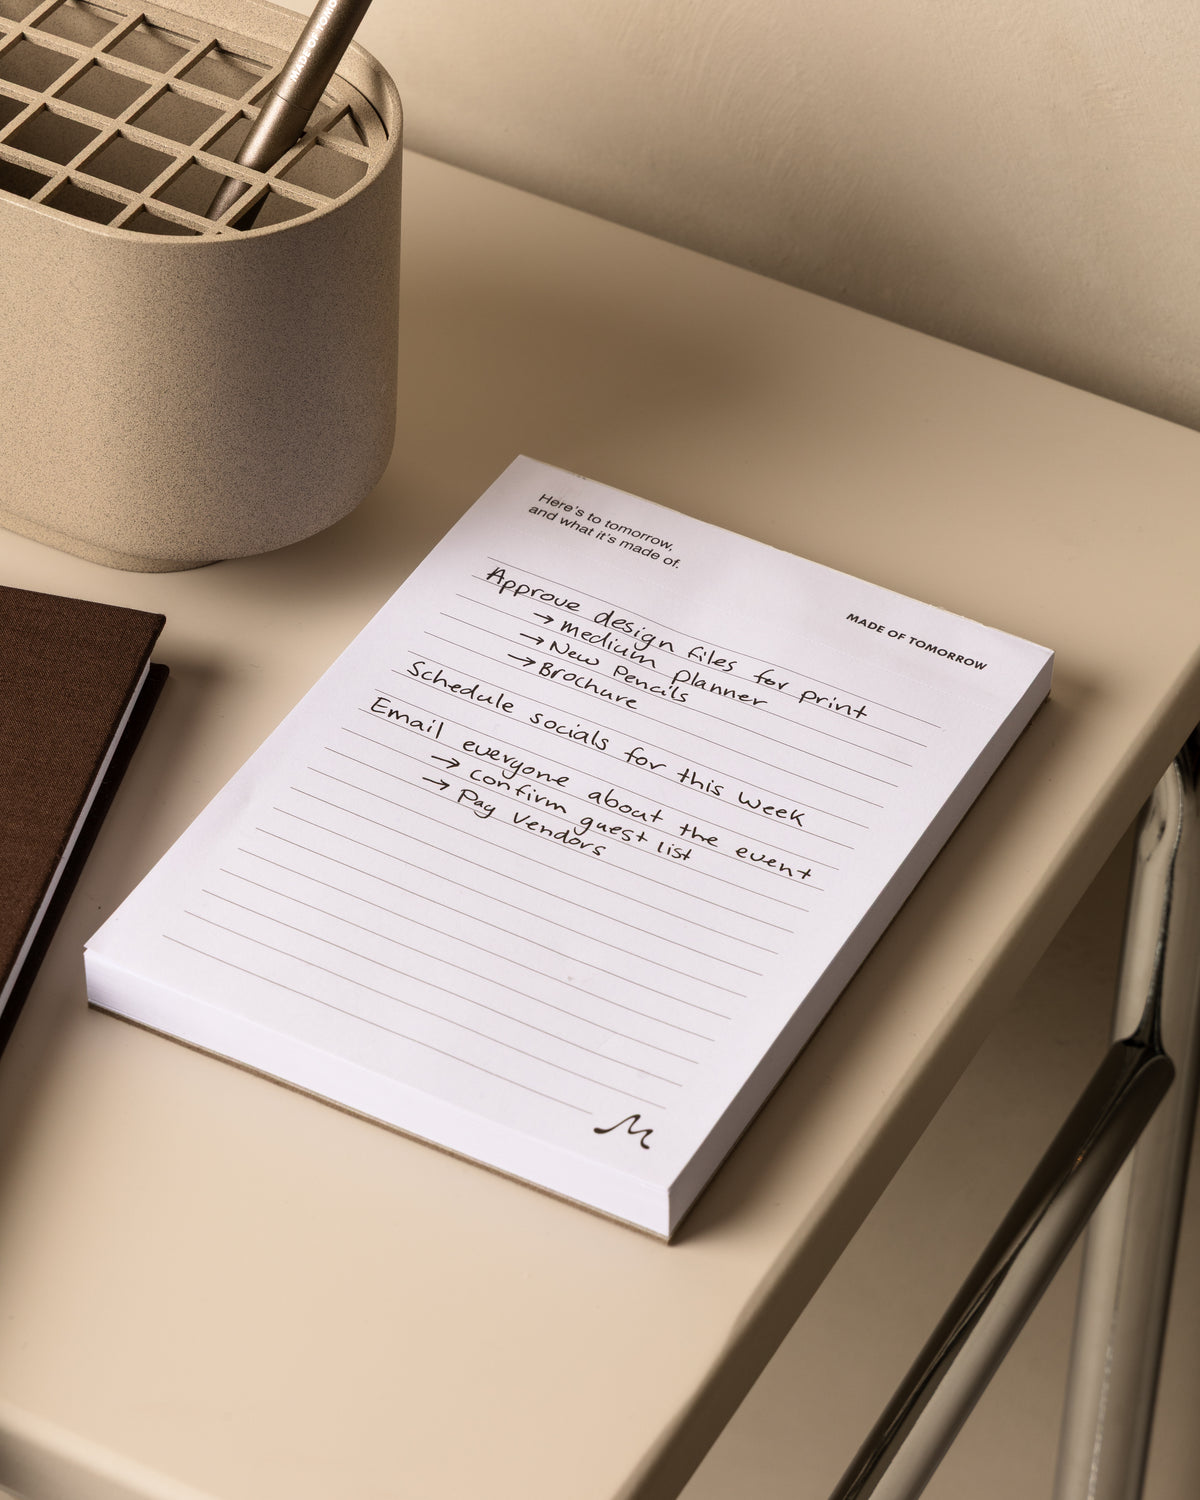 MADE OF TOMO
Here's to tomorrow,
and what it's made of.
MADE OF TOMORROW
Approve design files for print
→ medium planner
→ New Pencils
→ Brochure
Schedule socials for this week
Email everyone about the event
→ confirm guest list
→ Pay vendors
M